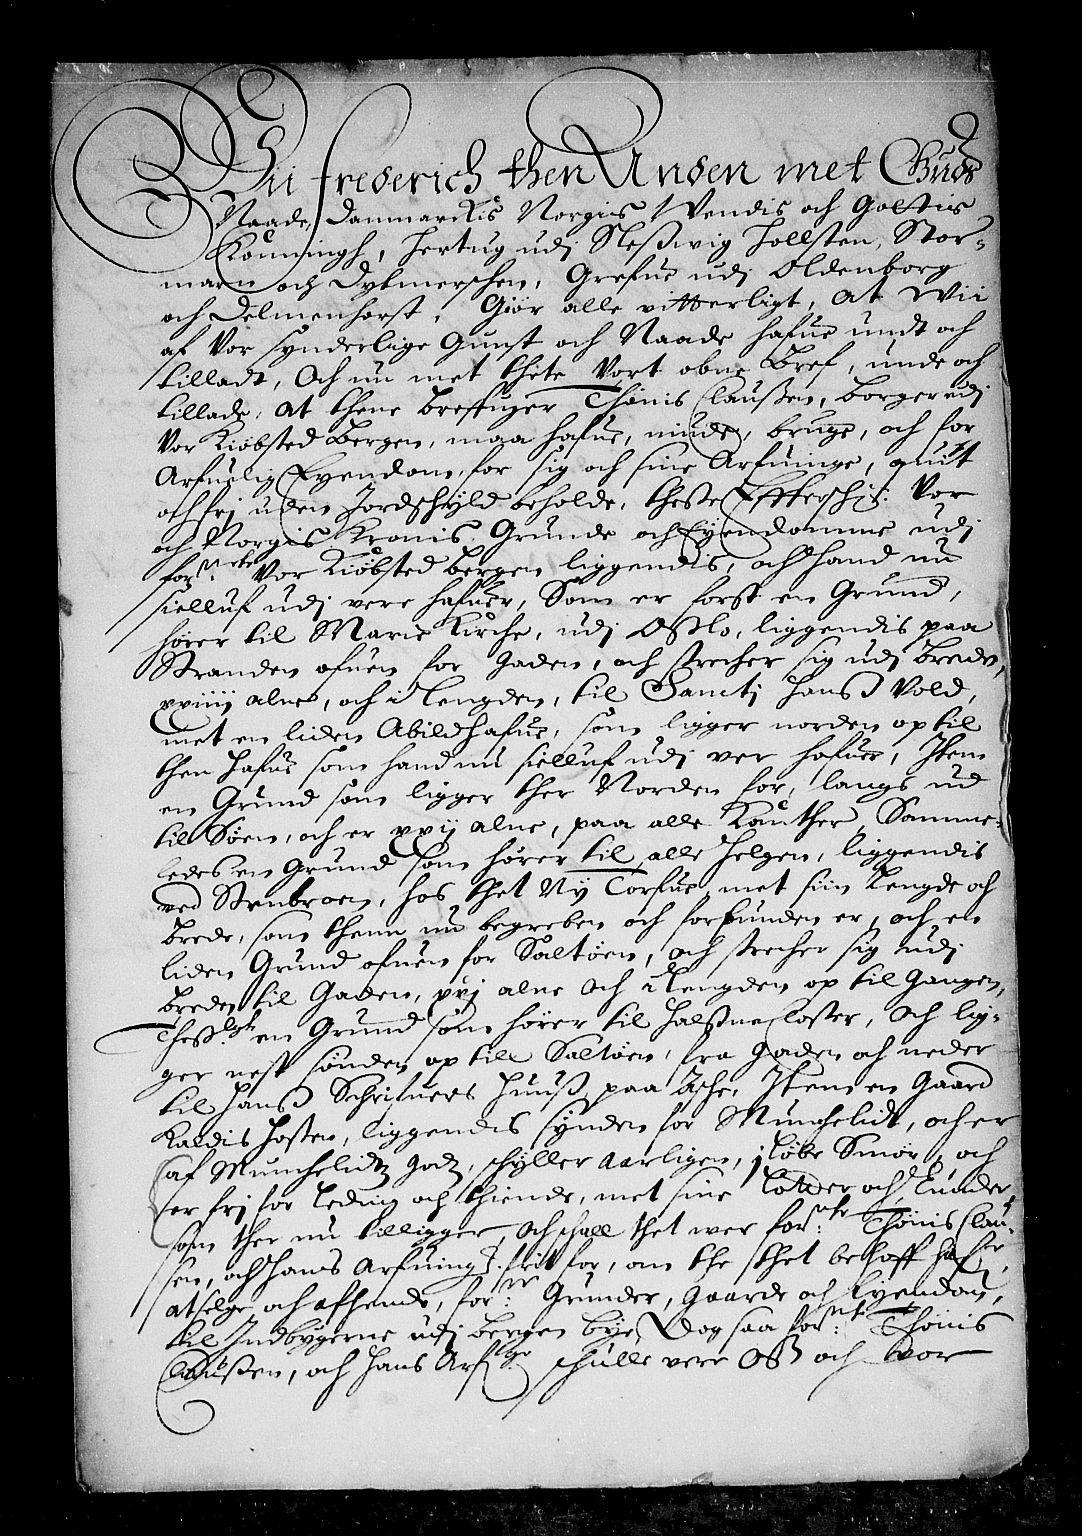 Wii Frederich then Anden met Guds
Naade, Danmarckis Norgis Wendis och Gottis
Konningh, Hertug udj Sleßwig Hollsten, Stor-
marn och Dytmerschen, Grefue udj Oldenborg
och Delmenhorst, Giør alle vitterligt, At Wii
af Vor synderlige Gunst och Naade hafue undt och
tilladt, Och nu met thete Vort obne Bref, unde och
tillade, At thene brefuiser Thønis Claußen, borger udj
Vor Kiøbsted Bergen, maa hafue, niude, bruge, och for
Arfuelig Eyendom, for sig och sine Arfuinge, quit
och frj uden Jordschyld beholde, theste Effterschr: Vor
och Norgis Kronis Grunde och Eyendomme udj
forsn:te Vor Kiøbsted Bergen liggendis, och hand nu
sielluf udj vere hafuer, Som er først en Grund,
hører til Marie Kirche, udj Osslo, liggendis paa
Stranden ofuen for Gaden, och strecher sig udj breden,
xxiiij alne, och i lengden, til Sanctj Hanß Vold,
met en liden Abildhafue, som ligger norden op til
then hafue som hand nu sielluf udj ver hafuer, Item
en Grund som ligger ther Norden for, langs ud
til Søen, och er xxij alne, paa alle Kanther, Samme-
ledes en Grund som hører til alle Helgen, liggendis
ved Strnbroen, hos thet Ny Torfue, met siin lengde och
brede, som thenn nu begreben och forfunden er, och en
liden Grund ofuen for Saltøen, och strecher sig udj
breden til Gaden, xvj alne och i lengden op til Gangen,
Theßligt en Grund som hører til Halsne closter, Och lig-
ger nest sønden op till Saltøen, fra Gaden och neder
til Hanß Schrifuers Huuß paa Ache, Item en Gaard
Kaldis Hosten, liggendis synden for Munchelidt, och er
af Munchelidtz Godz, schyller aarligen, j løbe Smør, och
er frj for leding och thiende, met sine lotter och lunder
som ther nu tilligger, Och schall thet wer forn:te Thønis Clau-
sen, och hans Arfuing: frit for, om the thet behoff hafr,
at selge och afhende, for:ne Grunder, Gaarde och Eyendom,
til Indbygerne udj Bergen bye, Dog saa forn:te Thønis
Claußen, och hans Arf:ge schulle vere Oß och wor